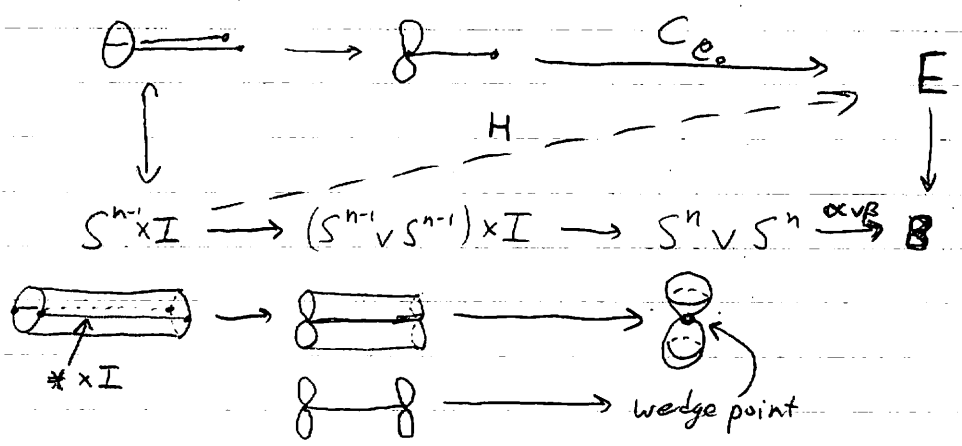 C_{e_0} E
H
S^{n-1} × I → (S^{n-1} ∨ S^{n-1}) × I → S^n ∨ S^n α∨β → B
* × I
wedge point